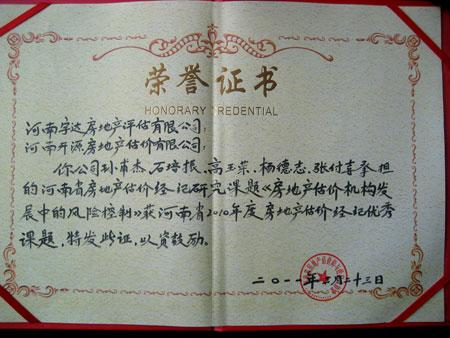 荣誉证书
HONORARY CREDENTIAL
河南宇达房地产评估有限公司:
河南开源房地产估价有限公司:
你公司孙甫杰、石培振、高玉荣、杨德志、张付喜承担
的河南省房地产估价经纪研究课题《房地产估价机构发
展中的风险控制》获河南省2010年度房地产估价经纪优秀
课题,特发此证,以资鼓励。
二〇一一年 月二十三日